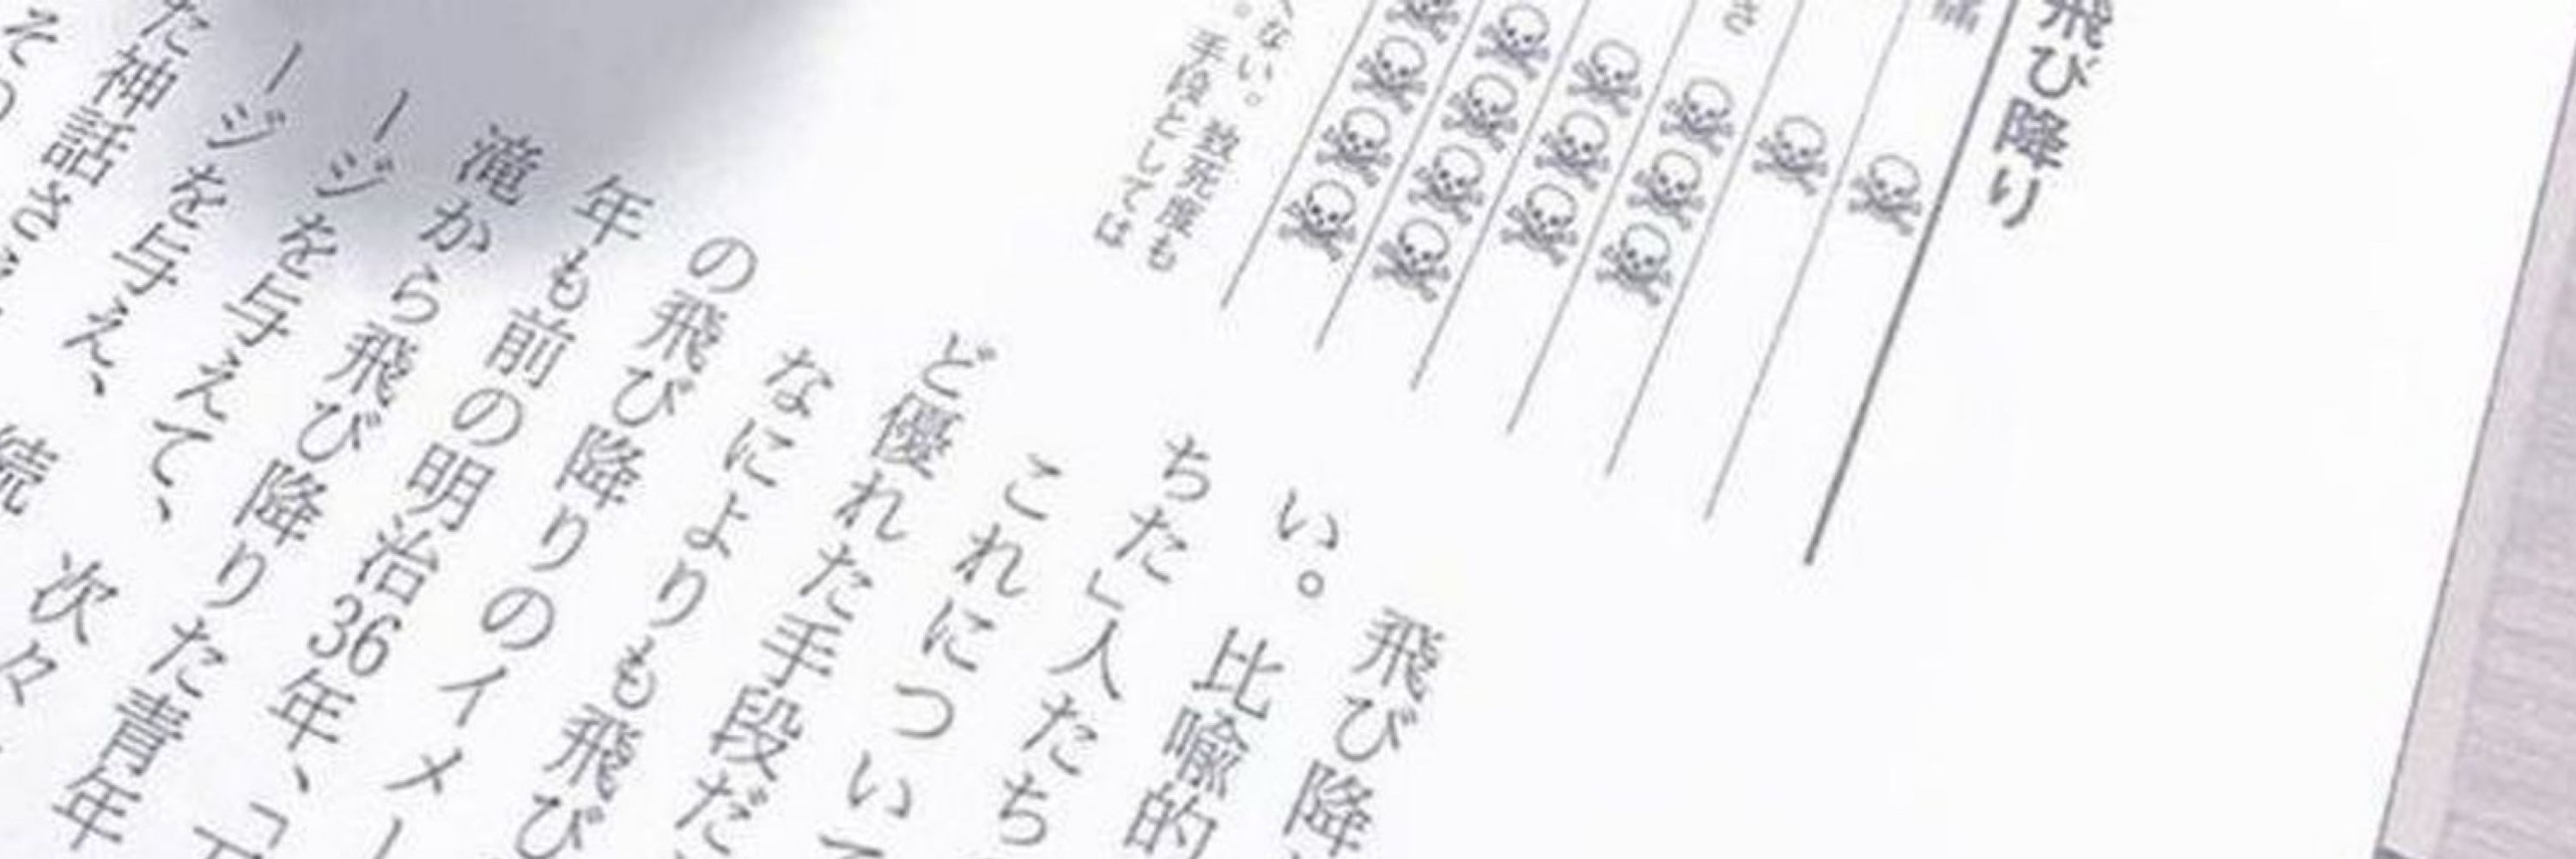 飛び降り
さ
ない。致死度も
。手段としては
飛び降
い。比喩的
ちた」人たち
これについて
ど優れた手段だ
なによりも飛び
の飛び降りのイメー
年も前の明治36年、
滝から飛び降りた青年
ージを与えて、次々
ージを与え、続
た神話さ
その